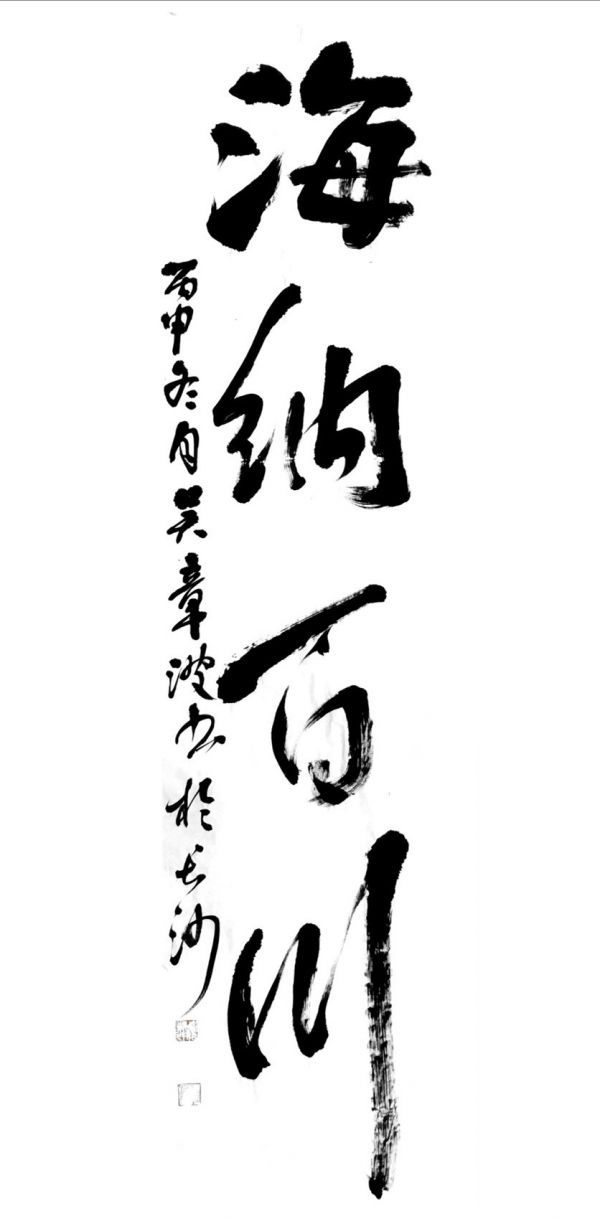 海纳百川
丙申冬月吴章波书於长沙